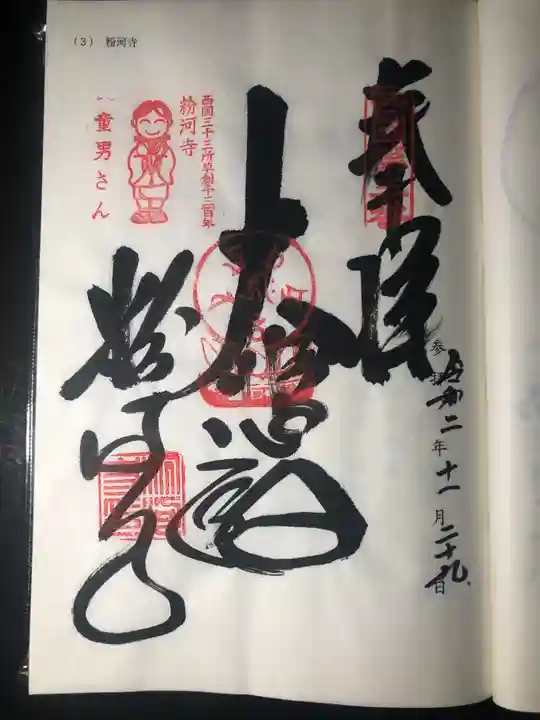 (3) 粉河寺
奉拝
大悲殿
粉河寺
西国三十三所草創千三百年
粉河寺
童男さん
参拝 令和二年十一月二十九日